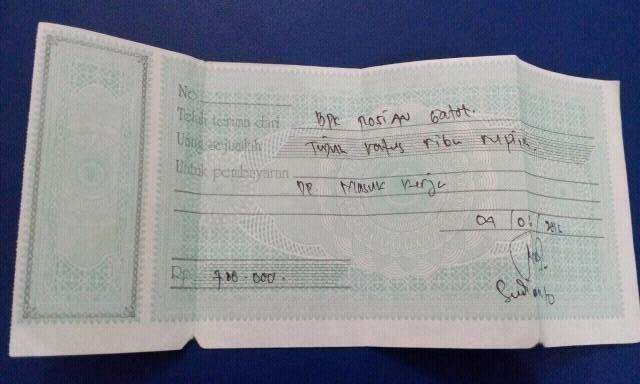 No.
Telah terima dari BPK ROSIAN Gatot.
Uang sejumlah Tujuh ratus ribu rupia.
Untuk pembayaran DP Masuk kerja
04 / 06 / 2016
Rp. 700.000.
Sudianto